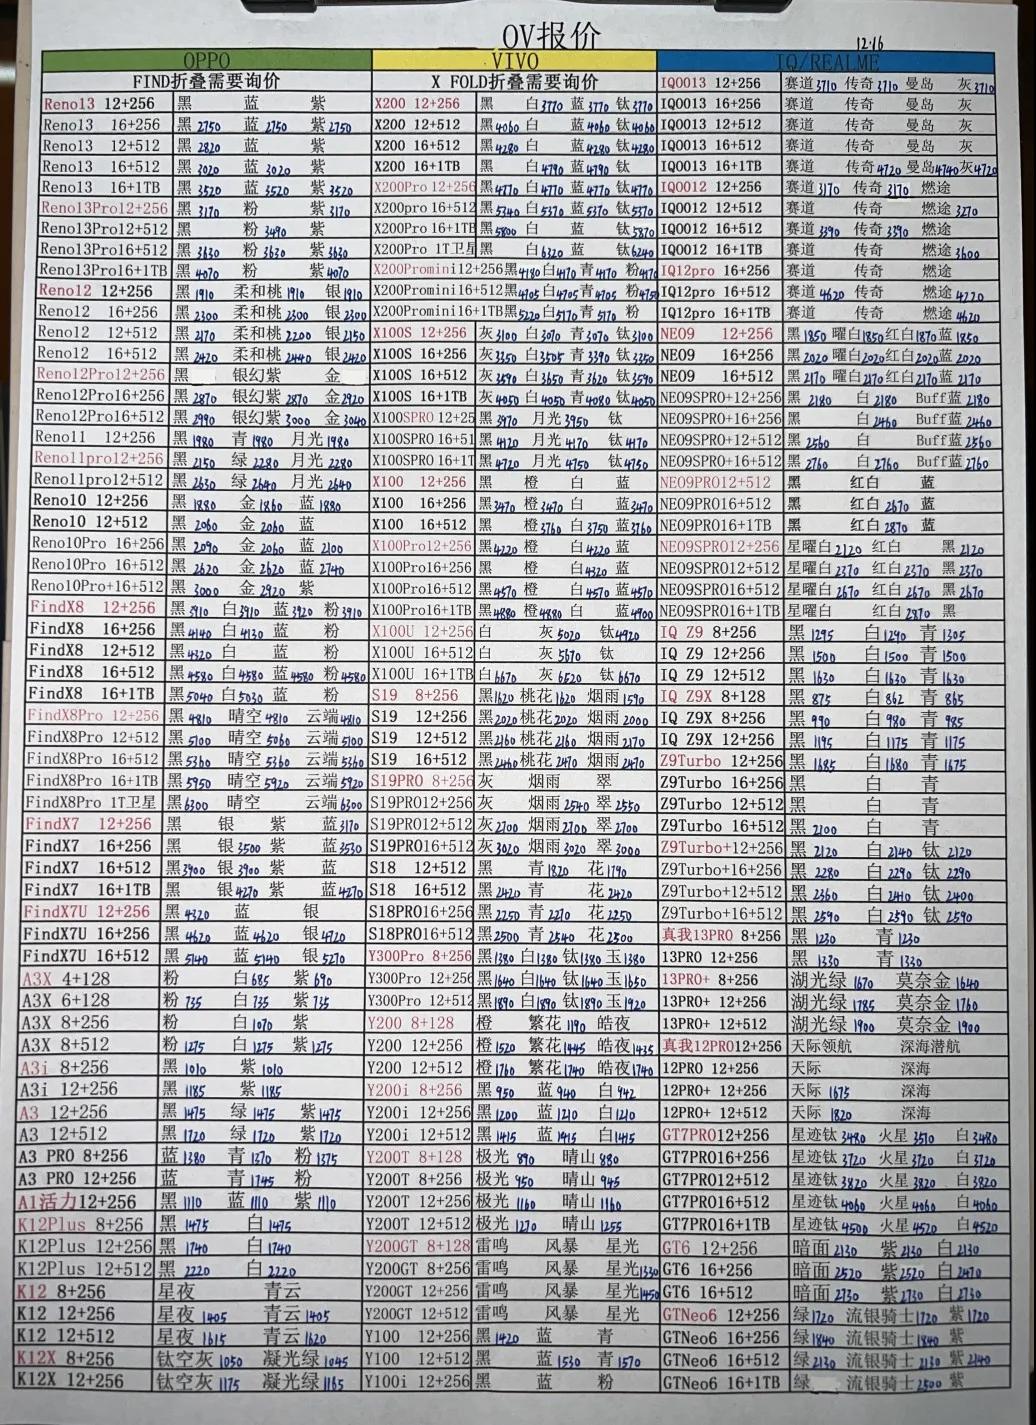 OV报价
12.16
OPPO VIVO IQ/REALME
FIND折叠需要询价 X FOLD折叠需要询价 IQ0013 12+256 赛道3710 传奇3710 曼岛 灰3710
Reno13 12+256 黑 蓝 紫 X200 12+256 黑 白3770 蓝3770 钛3770 IQ0013 16+256 赛道 传奇 曼岛 灰
Reno13 16+256 黑2750 蓝2750 紫2750 X200 12+512 黑4060 白 蓝4060 钛4060 IQ0013 12+512 赛道 传奇 曼岛 灰
Reno13 12+512 黑2820 蓝 紫 X200 16+512 黑4280 白 蓝4280 钛4280 IQ0013 16+512 赛道 传奇 曼岛 灰
Reno13 16+512 黑3020 蓝3020 紫 X200 16+1TB 黑 白4790 蓝4790 钛 IQ0013 16+1TB 赛道 传奇4720 曼岛4740 灰4720
Reno13 16+1TB 黑3520 蓝3520 紫3520 X200Pro 12+256 黑4770 白4770 蓝4770 钛4770 IQ0012 12+256 赛道3170 传奇3170 燃途
Reno13Pro12+256 黑3170 粉 紫3170 X200pro 16+512 黑5340 白5370 蓝5370 钛5370 IQ0012 12+512 赛道 传奇 燃途3270
Reno13Pro12+512 黑 粉3490 紫 X200Pro 16+1TB 黑5800 白 蓝 钛5870 IQ0012 16+512 赛道3390 传奇3390 燃途
Reno13Pro16+512 黑3630 粉3630 紫3630 X200Pro 1T卫星 黑 白6320 蓝 钛6240 IQ0012 16+1TB 赛道 传奇 燃途3600
Reno13Pro16+1TB 黑4070 粉 紫4070 X200Promini12+256 黑4180 白4170 青4170 粉4170 IQ12pro 16+256 赛道 传奇 燃途
Reno12 12+256 黑1910 柔和桃1910 银1910 X200Promini16+512 黑4705 白4705 青4705 粉4750 IQ12pro 16+512 赛道4620 传奇 燃途4220
Reno12 16+256 黑2300 柔和桃2300 银2300 X200Promini16+1TB 黑5220 白5170 青5170 粉 IQ12pro 16+1TB 赛道 传奇 燃途4620
Reno12 12+512 黑2170 柔和桃2200 银2150 X100S 12+256 灰3100 白3070 青3070 钛3100 NEO9 12+256 黑1850 曜白1850 红白1870 蓝1850
Reno12 16+512 黑2420 柔和桃2440 银2420 X100S 16+256 灰3350 白3505 青3390 钛3350 NEO9 16+256 黑2020 曜白2020 红白2020 蓝2020
Reno12Pro12+256 黑 银幻紫 金 X100S 16+512 灰3590 白3650 青3620 钛3590 NEO9 16+512 黑2170 曜白2170 红白2170 蓝2170
Reno12Pro16+256 黑2870 银幻紫2870 金2920 X100S 16+1TB 灰4050 白4050 青4080 钛4050 NEO9SPRO+12+256 黑2180 白2180 Buff蓝2180
Reno12Pro16+512 黑2990 银幻紫3000 金3040 X100SPRO 12+25 黑3970 月光3950 钛 NEO9SPRO+16+256 黑 白2460 Buff蓝2460
Reno11 12+256 黑1980 青1980 月光1980 X100SPRO 16+51 黑4120 月光4170 钛4170 NEO9SPRO+12+512 黑2560 白 Buff蓝2560
Reno11pro12+256 黑2150 绿2280 月光2280 X100SPRO 16+1T 黑4720 月光4750 钛4750 NEO9SPRO+16+512 黑2760 白2760 Buff蓝2760
Reno11pro12+512 黑2630 绿2640 月光2640 X100 12+256 黑 橙 白 蓝 NEO9PRO12+512 黑 红白 蓝
Reno10 12+256 黑1880 金1860 蓝1880 X100 16+256 黑3470 橙 白 蓝3470 NEO9PRO16+512 黑 红白2670 蓝
Reno10 12+512 黑2060 金2060 蓝 X100 16+512 黑 橙3760 白3750 蓝3760 NEO9PRO16+1TB 黑 红白2870 蓝
Reno10Pro 16+256 黑2090 金2060 蓝2100 X100Pro12+256 黑4220 橙 白4220 蓝 NEO9SPRO12+256 星曜白2120 红白 黑2120
Reno10Pro 16+512 黑2620 金2620 蓝2740 X100Pro16+256 黑 橙 白4320 蓝 NEO9SPRO12+512 星曜白2370 红白2370 黑2370
Reno10Pro+16+512 黑3000 金2920 紫 X100Pro16+512 黑4570 橙 白4570 蓝4570 NEO9SPRO16+512 星曜白2670 红白2670 黑2670
FindX8 12+256 黑3910 白3910 蓝3920 粉3910 X100Pro16+1TB 黑4880 橙4880 白 蓝4900 NEO9SPRO16+1TB 星曜白 红白2870 黑
FindX8 16+256 黑4140 白4130 蓝 粉 X100U 12+256 白 灰5020 钛4920 IQ Z9 8+256 黑1295 白1290 青1305
FindX8 12+512 黑4320 白 蓝 粉 X100U 16+512 白 灰5670 钛 IQ Z9 12+256 黑1500 白1500 青1500
FindX8 16+512 黑4580 白4580 蓝4580 粉4580 X100U 16+1TB 白6670 灰6520 钛6670 IQ Z9 12+512 黑1630 白1630 青1630
FindX8 16+1TB 黑5040 白5030 蓝 粉 S19 8+256 黑1620 桃花1620 烟雨1590 IQ Z9X 8+128 黑875 白862 青865
FindX8Pro 12+256 黑4810 晴空4810 云端4810 S19 12+256 黑2020 桃花2020 烟雨2000 IQ Z9X 8+256 黑990 白980 青985
FindX8Pro 12+512 黑5100 晴空5060 云端5100 S19 12+512 黑2160 桃花2160 烟雨2170 IQ Z9X 12+256 黑1195 白1175 青1175
FindX8Pro 16+512 黑5360 晴空5360 云端5360 S19 16+512 黑2460 桃花2470 烟雨2470 Z9Turbo 12+256 黑1685 白1680 青1675
FindX8Pro 16+1TB 黑5950 晴空5920 云端5920 S19PRO 8+256 灰 烟雨 翠 Z9Turbo 16+256 黑 白 青
FindX8Pro 1T卫星 黑6300 晴空 云端6300 S19PRO12+256 灰 烟雨2540 翠2550 Z9Turbo 12+512 黑 白 青
FindX7 12+256 黑 银 紫 蓝3170 S19PRO12+512 灰2700 烟雨2700 翠2700 Z9Turbo 16+512 黑2100 白 青
FindX7 16+256 黑 银3500 紫 蓝3530 S19PRO16+512 灰3020 烟雨3020 翠3000 Z9Turbo+12+256 黑2120 白2140 钛2120
FindX7 16+512 黑3900 银3900 紫 蓝 S18 12+512 黑 青1820 花1790 Z9Turbo+16+256 黑2280 白2290 钛2290
FindX7 16+1TB 黑 银4270 紫 蓝4270 S18 16+512 黑2420 青 花2420 Z9Turbo+12+512 黑2360 白2410 钛2400
FindX7U 12+256 黑4320 蓝 银 S18PRO16+256 黑2250 青2270 花2250 Z9Turbo+16+512 黑2590 白2590 钛2590
FindX7U 16+256 黑4620 蓝4620 银4720 S18PRO16+512 黑2500 青2540 花2500 真我13PRO 8+256 黑1230 青1230
FindX7U 16+512 黑5140 蓝5140 银5270 Y300Pro 8+256 黑1380 白1380 钛1380 玉1380 13PRO 12+256 黑1330 青1330
A3X 4+128 粉 白685 紫690 Y300Pro 12+256 黑1640 白1640 钛1640 玉1650 13PRO+ 8+256 湖光绿1670 莫奈金1640
A3X 6+128 粉735 白735 紫735 Y300Pro 12+512 黑1890 白1890 钛1890 玉1920 13PRO+ 12+256 湖光绿1785 莫奈金1760
A3X 8+256 粉 白1070 紫 Y200 8+128 橙 繁花1190 皓夜 13PRO+ 12+512 湖光绿1900 莫奈金1900
A3X 8+512 粉1275 白1275 紫1275 Y200 12+256 橙1520 繁花1445 皓夜1435 真我12PRO12+256 天际领航 深海潜航
A3i 8+256 黑1010 紫1010 Y200 12+512 橙1760 繁花1740 皓夜1740 12PRO 12+256 天际 深海
A3i 12+256 黑1185 紫1185 Y200i 8+256 黑950 蓝940 白942 12PRO+ 12+256 天际1675 深海
A3 12+256 黑1475 绿1475 紫1475 Y200i 12+256 黑1200 蓝1210 白1210 12PRO+ 12+512 天际1820 深海
A3 12+512 黑1720 绿1720 紫1720 Y200i 12+512 黑1415 蓝1415 白1415 GT7PRO12+256 星迹钛3480 火星3510 白3480
A3 PRO 8+256 蓝1380 青1370 粉1375 Y200T 8+128 极光890 晴山880 GT7PRO16+256 星迹钛3720 火星3720 白3720
A3 PRO 12+256 蓝 青1745 粉 Y200T 8+256 极光950 晴山945 GT7PRO12+512 星迹钛3820 火星3820 白3820
A1活力12+256 黑1110 蓝1110 紫1110 Y200T 12+256 极光1160 晴山1160 GT7PRO16+512 星迹钛4060 火星4060 白4060
K12Plus 8+256 黑1475 白1475 Y200T 12+512 极光1270 晴山1255 GT7PRO16+1TB 星迹钛4500 火星4520 白4520
K12Plus 12+256 黑1740 白1740 Y200GT 8+128 雷鸣 风暴 星光 GT6 12+256 暗面2130 紫2130 白2130
K12Plus 12+512 黑2220 白2220 Y200GT 8+256 雷鸣 风暴 星光1330 GT6 16+256 暗面2520 紫2520 白2470
K12 8+256 星夜 青云 Y200GT 12+256 雷鸣 风暴 星光1450 GT6 16+512 暗面2730 紫2730 白2730
K12 12+256 星夜1405 青云1405 Y200GT 12+512 雷鸣 风暴 星光 GTNeo6 12+256 绿1720 流银骑士1720 紫1720
K12 12+512 星夜1615 青云1620 Y100 12+256 黑1420 蓝 青 GTNeo6 16+256 绿1840 流银骑士1840 紫
K12X 8+256 钛空灰1050 凝光绿1045 Y100 12+512 黑 蓝1530 青1570 GTNeo6 16+512 绿2130 流银骑士2130 紫2140
K12X 12+256 钛空灰1175 凝光绿1165 Y100i 12+256 黑 蓝 粉 GTNeo6 16+1TB 绿 流银骑士2500 紫